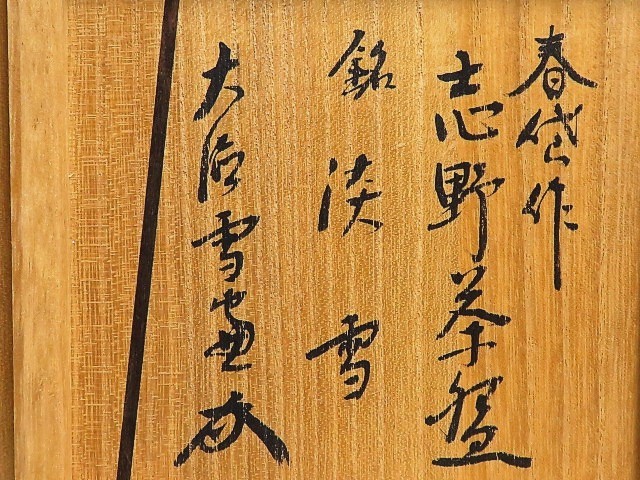 春岱作
志野茶盌
銘 淡雪
大徳雪